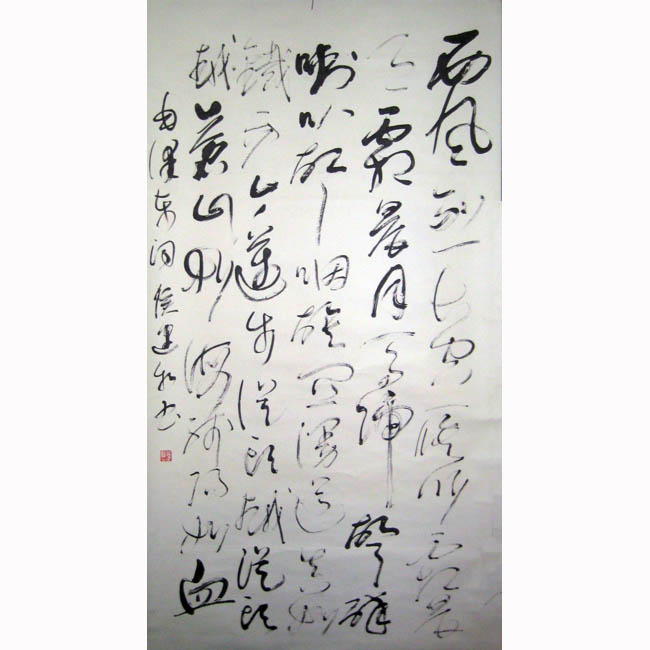 西风烈长空雁叫霜晨
月霜晨月马蹄声碎
喇叭声咽雄关漫道真如
鐵而今迈步从头越从头
越苍山如海残阳如血
毛泽东词侯建书